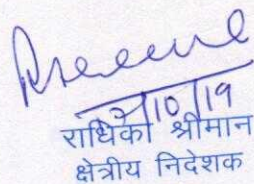 /10/19
राधिका श्रीमान
क्षेत्रीय निदेशक